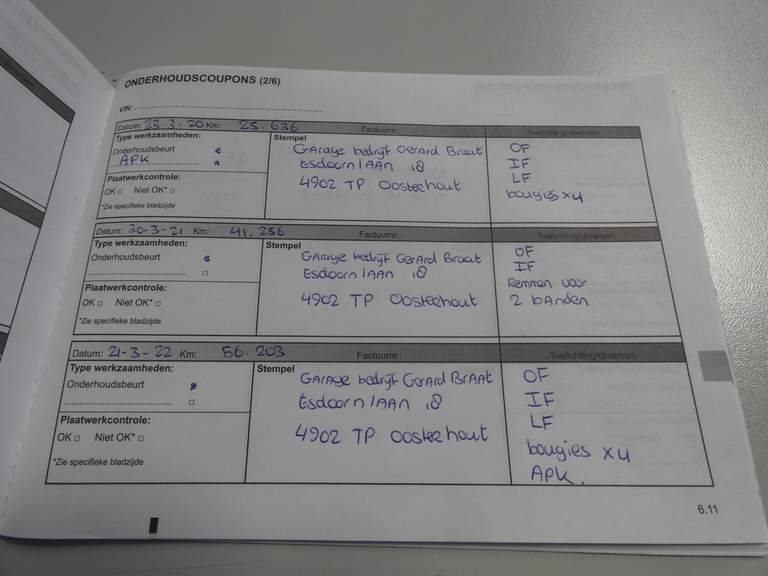 ONDERHOUDSCOUPONS (2/6)
VIN:
Datum: 23-3-20 Km: 25.636 Factuurnr.: Toelichting/diversen
Type werkzaamheden:
Onderhoudsbeurt
APK
Plaatwerkcontrole:
OK □ Niet OK* □
*Zie specifieke bladzijde
Stempel
GArage bedrijf GerArd Braat
EsdoornlAAn 18
4902 TP Oosterhout
OF
IF
LF
bougies x4
Datum: 30-3-21 Km: 41.256 Factuurnr.: Toelichting/diversen
Type werkzaamheden:
Onderhoudsbeurt
Plaatwerkcontrole:
OK □ Niet OK* □
*Zie specifieke bladzijde
Stempel
GArage bedrijf GerArd Braat
EsdoornlAAn 18
4902 TP Oosterhout
OF
IF
Remmen voor
2 bAnden
Datum: 21-3-22 Km: 56.203 Factuurnr.: Toelichting/diversen
Type werkzaamheden:
Onderhoudsbeurt
Plaatwerkcontrole:
OK □ Niet OK* □
*Zie specifieke bladzijde
Stempel
GArage bedrijf GerArd BrAAt
EsdoornlAAn 18
4902 TP Oosterhout
OF
IF
LF
bougies x4
APK.
6.11